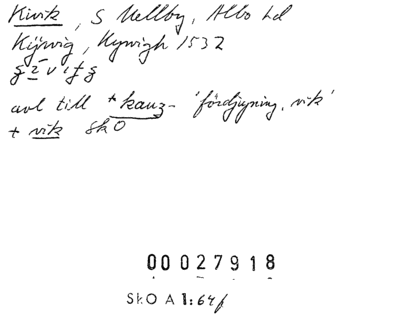 Kivik, S Mellby, Albo hd
Kijwig, Kywigh 1532
avl till *kauz- 'fördjupning, vik'
+ vik SkO
00027918
SkO A 1:64f